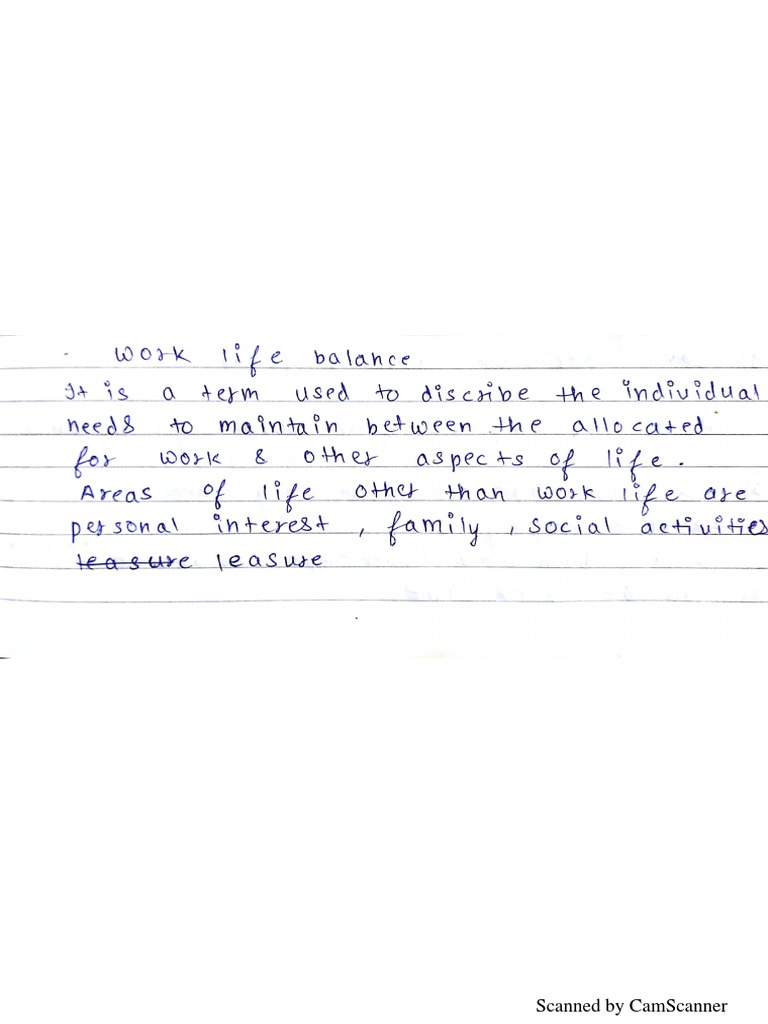 · work life balance
It is a term used to discribe the individual
needs to maintain between the allocated
for work & other aspects of life.
Areas of life other than work life are
personal interest, family, social activities
leasure leasure
Scanned by CamScanner